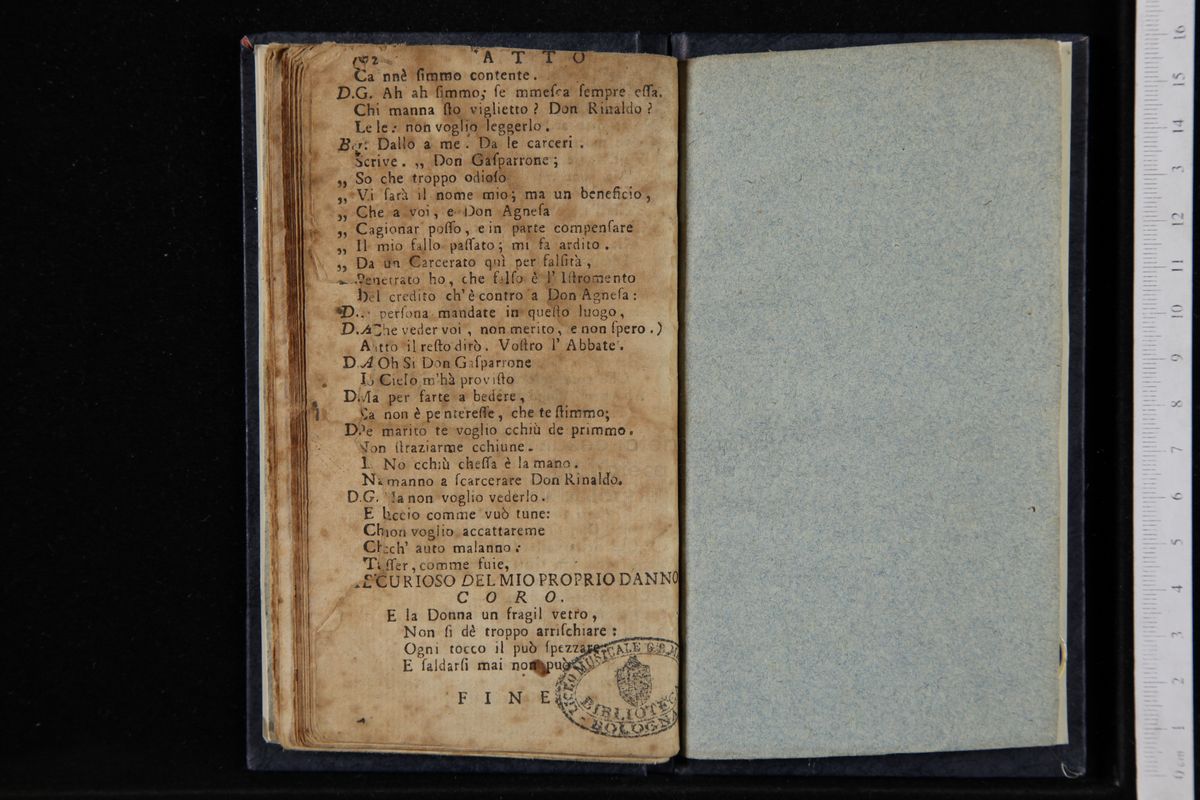 ATTO
Ca nnè ſimmo contente.
D.G. Ah ah ſimmo; ſe mmeſca ſempre eſſa.
Chi manna ſto viglietto? Don Rinaldo?
Le le: non voglio leggerlo.
Ber. Dallo a me. Da le carceri.
Scrive. „ Don Gaſparrone;
„ So che troppo odioſo
„ Vi ſarà il nome mio; ma un beneficio,
„ Che a voi, e Don Agneſa
„ Cagionar poſſo, e in parte compenſare
„ Il mio fallo paſſato; mi fa ardito.
„ Da un Carcerato quì per falſità,
Penetrato ho, che falſo è l' Iſtromento
Del credito ch'è contro a Don Agneſa:
perſona mandate in queſto luogo,
Che veder voi, non merito, e non ſpero.)
il reſto dirò. Voſtro l' Abbate.
D.A Oh Si Don Gaſparrone
Cielo m'hà proviſto
Ma per farte a bedere,
Ca non è pe ntereſſe, che te ſtimmo;
Pe marito te voglio cchiù de primmo.
Non ſtraziarme cchiune.
No cchiù cheſſa è la mano.
manno a ſcarcerare Don Rinaldo.
D.G. non voglio vederlo.
E comme vuò tune:
voglio accattareme
auto malanno:
comme fuie,
CURIOSO DEL MIO PROPRIO DANNO
CORO.
E la Donna un fragil vetro,
Non ſi dè troppo arriſchiare:
Ogni tocco il può ſpezzare,
E ſaldarſi mai non può
FINE
LICEO MUSICALE G.B.M.
BIBLIOTECA
BOLOGNA
0 cm 1 2 3 4 5 6 7 8 9 10 11 12 13 14 15 16